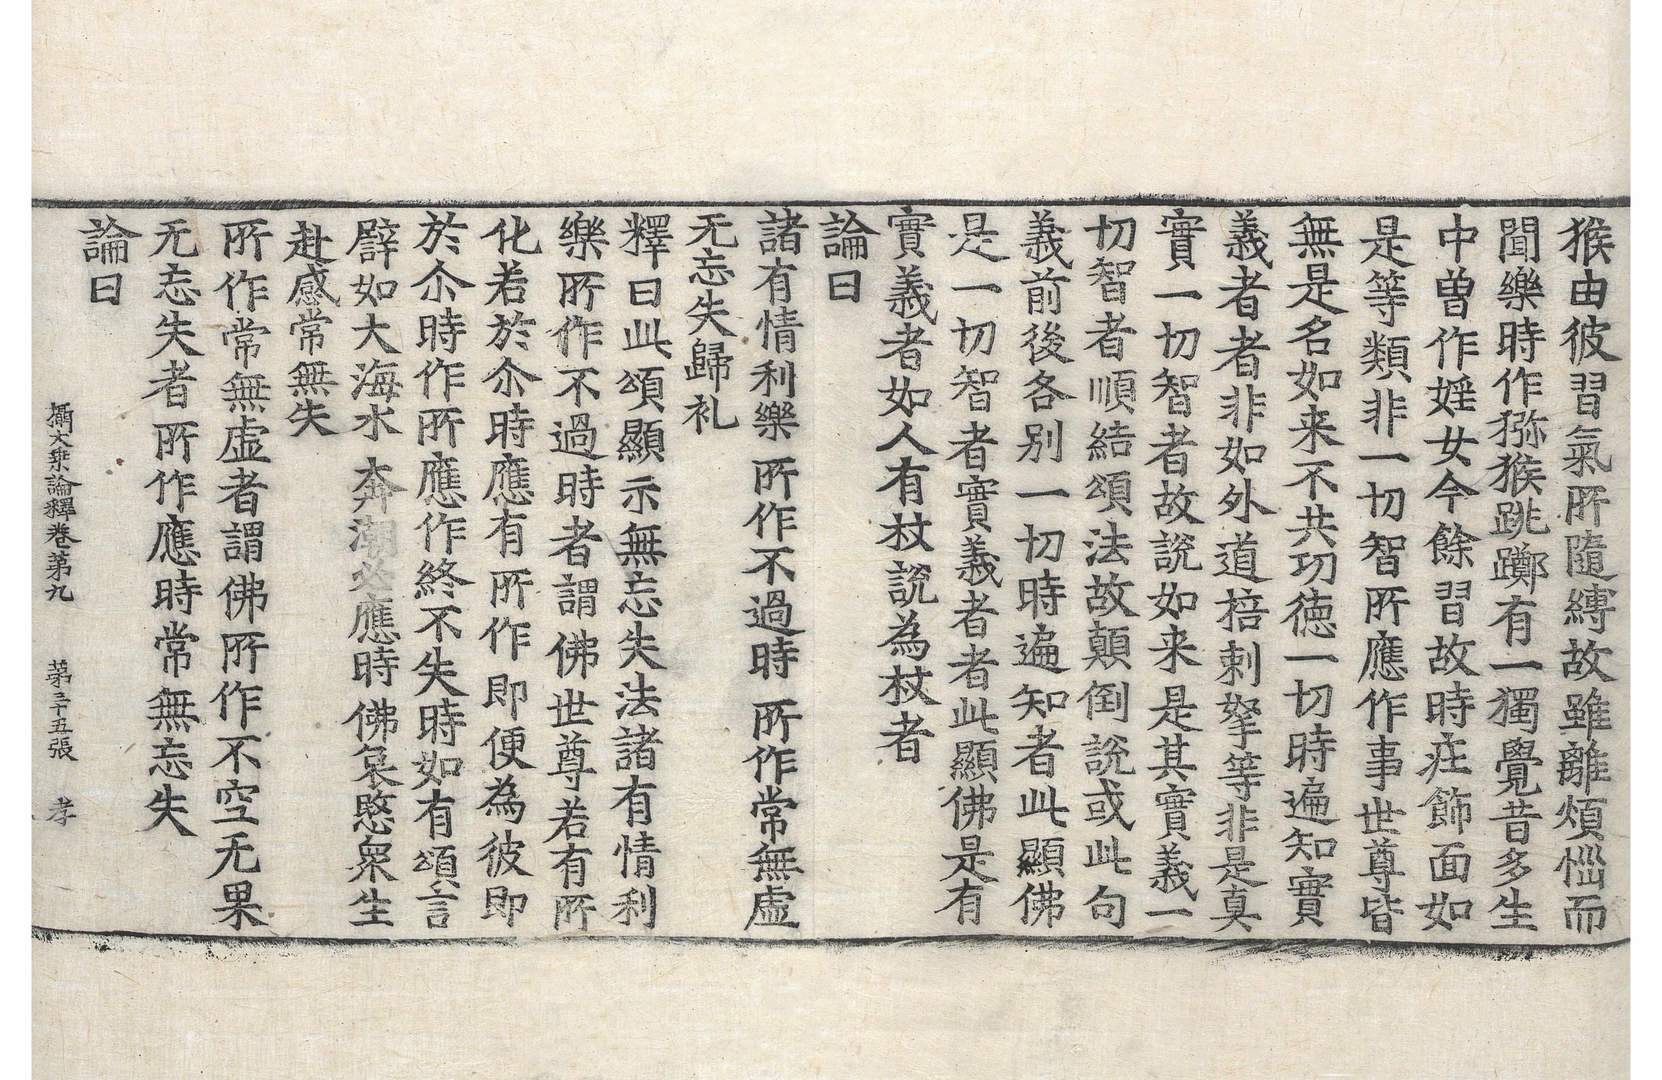 猴由彼習氣所隨縛故雖離煩惱而
聞樂時作獼猴跳躑有一獨覺昔多生
中曾作婬女今餘習故時庄飾面如
是等類非一切智所應作事世尊皆
無是名如来不共功德一切時遍知實
義者者非如外道掊剌拏等非是真
實一切智者故說如来是其實義一
切智者順結頌法故顛倒說或此句
義前後各別一切時遍知者此顯佛
是一切智者實義者者此顯佛是有
實義者如人有杖說為杖者
論曰
諸有情利樂 所作不過時 所作常無虛
无忘失歸礼
釋曰此頌顯示無忘失法諸有情利
樂所作不過時者謂佛世尊若有所
化若於尒時應有所作即便為彼即
於尒時作所應作終不失時如有頌言
譬如大海水 奔潮必應時佛哀愍衆生
赴感常無失
所作常無虛者謂佛所作不空无果
无忘失者所作應時常無忘失
論曰
攝大乗論釋卷第九 第三十五張 孝